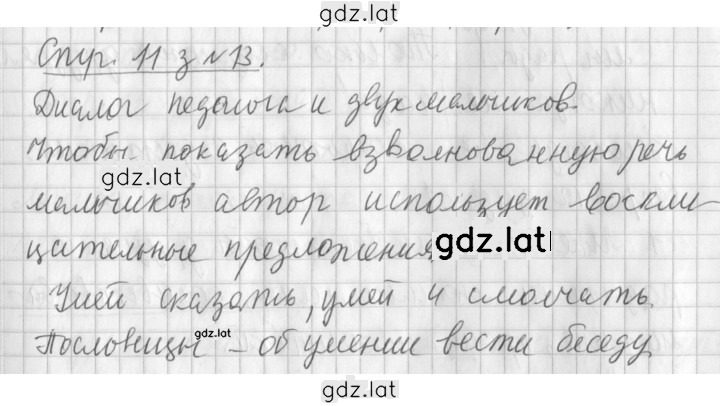 gdz.lat
Стр. 11 з №13.
Диалог педагога и двух мальчиков.
Чтобы показать взволнованную речь
gdz.lat
мальчиков автор использует воскли
цательные предложения.
gdz.lat
Умей сказать, умей и смолчать.
gdz.lat
Пословицы – об умении вести беседу
gdz.lat